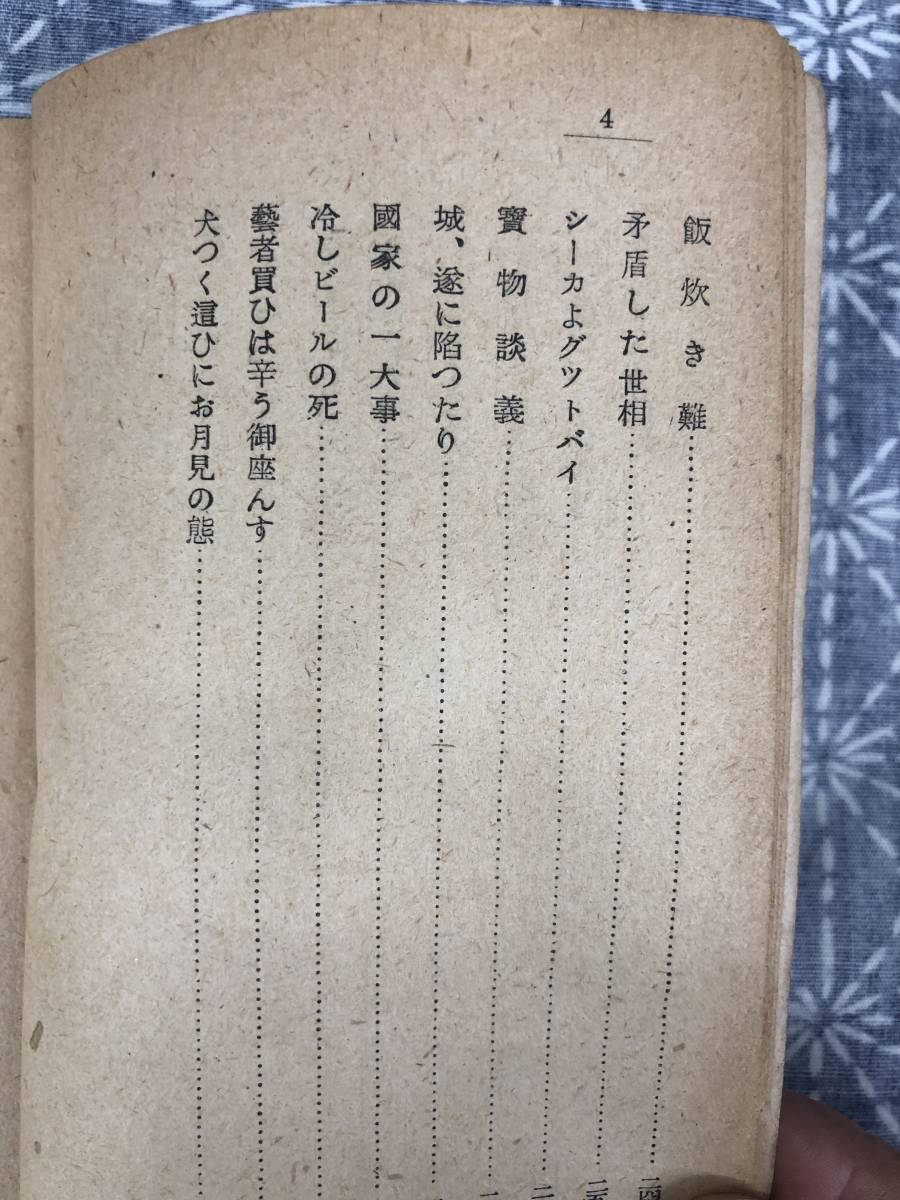 4
飯炊き難
矛盾した世相
シーカよグツトバイ
寶物談義
城、遂に陥つたり
國家の一大事
冷しビールの死
藝者買ひは辛う御座んす
犬つく這ひにお月見の態